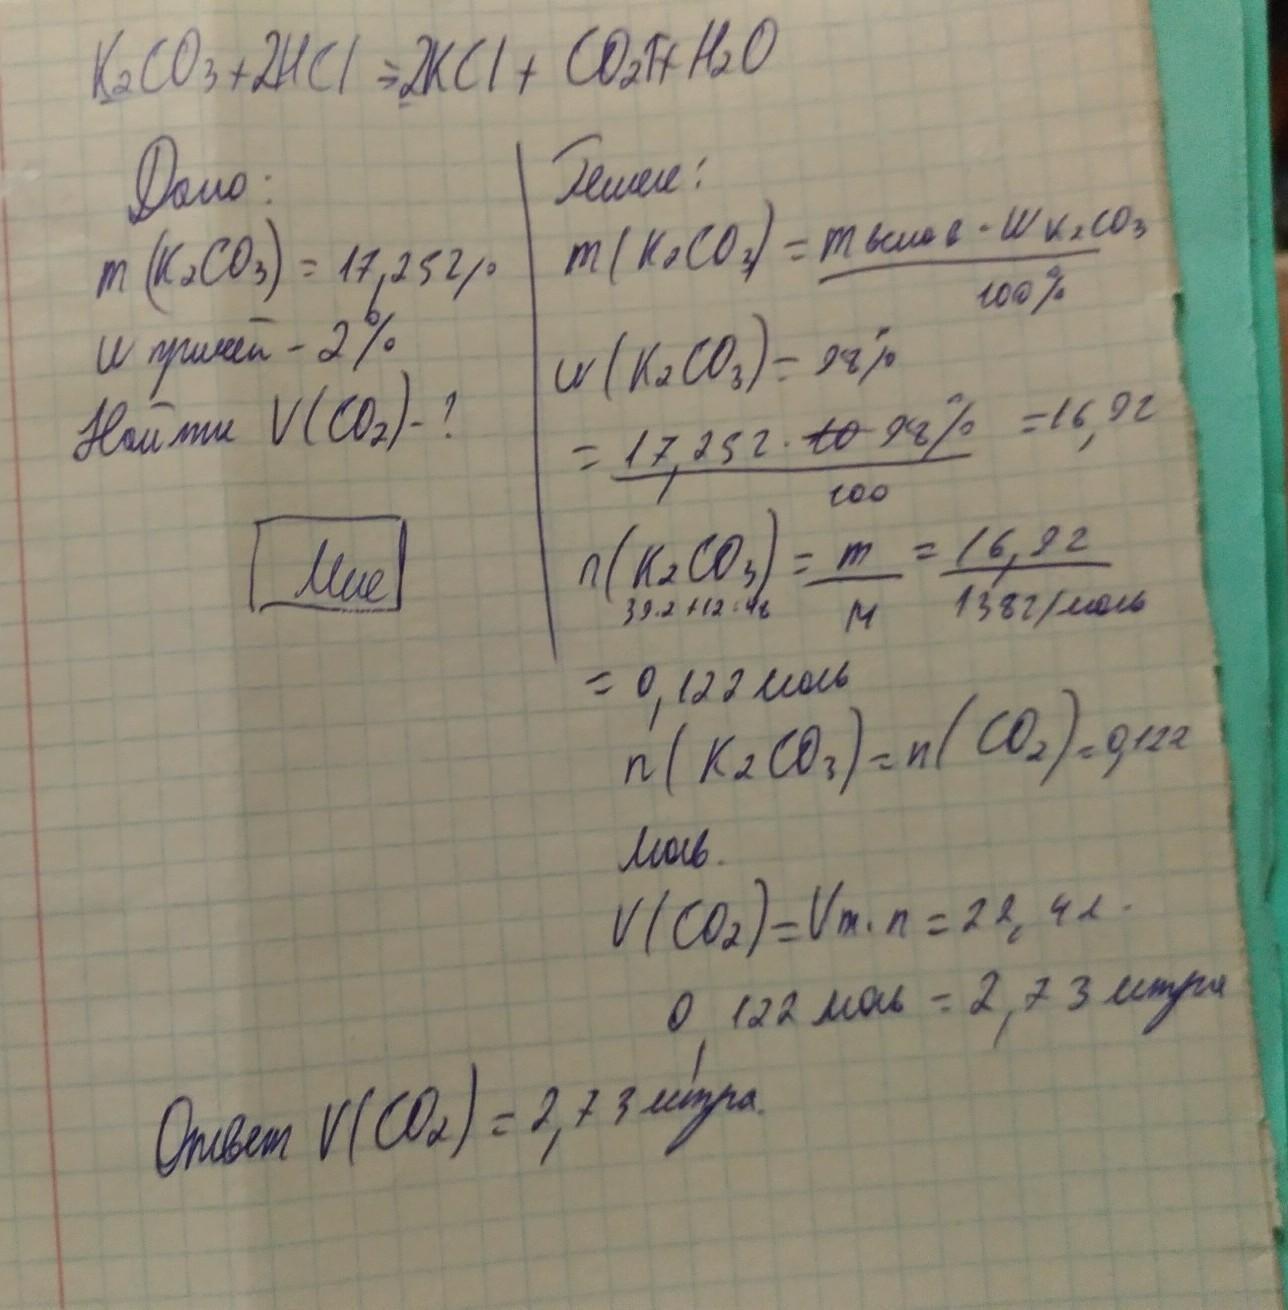 K2CO3+2HCl=2KCl+ CO2↑+H2O
Дано:
m(K2CO3)=17,25г
w примей-2%
Найти V(CO2)-?
Решен:
m(K2CO3)=
W K2CO3
100%
w(K2CO3)=98%
= 17,25г. 98% =16,9г
100
n(K2CO3)= m = 16,9г
39.2+12+48 M 138г/моль
= 0,122 моль
n(K2CO3)=n(CO2)=0,122
моль.
V(CO2)=Vm.n=22,4л.
0,122 моль=2,73 литра
Ответ V(CO2)=2,73 литра.